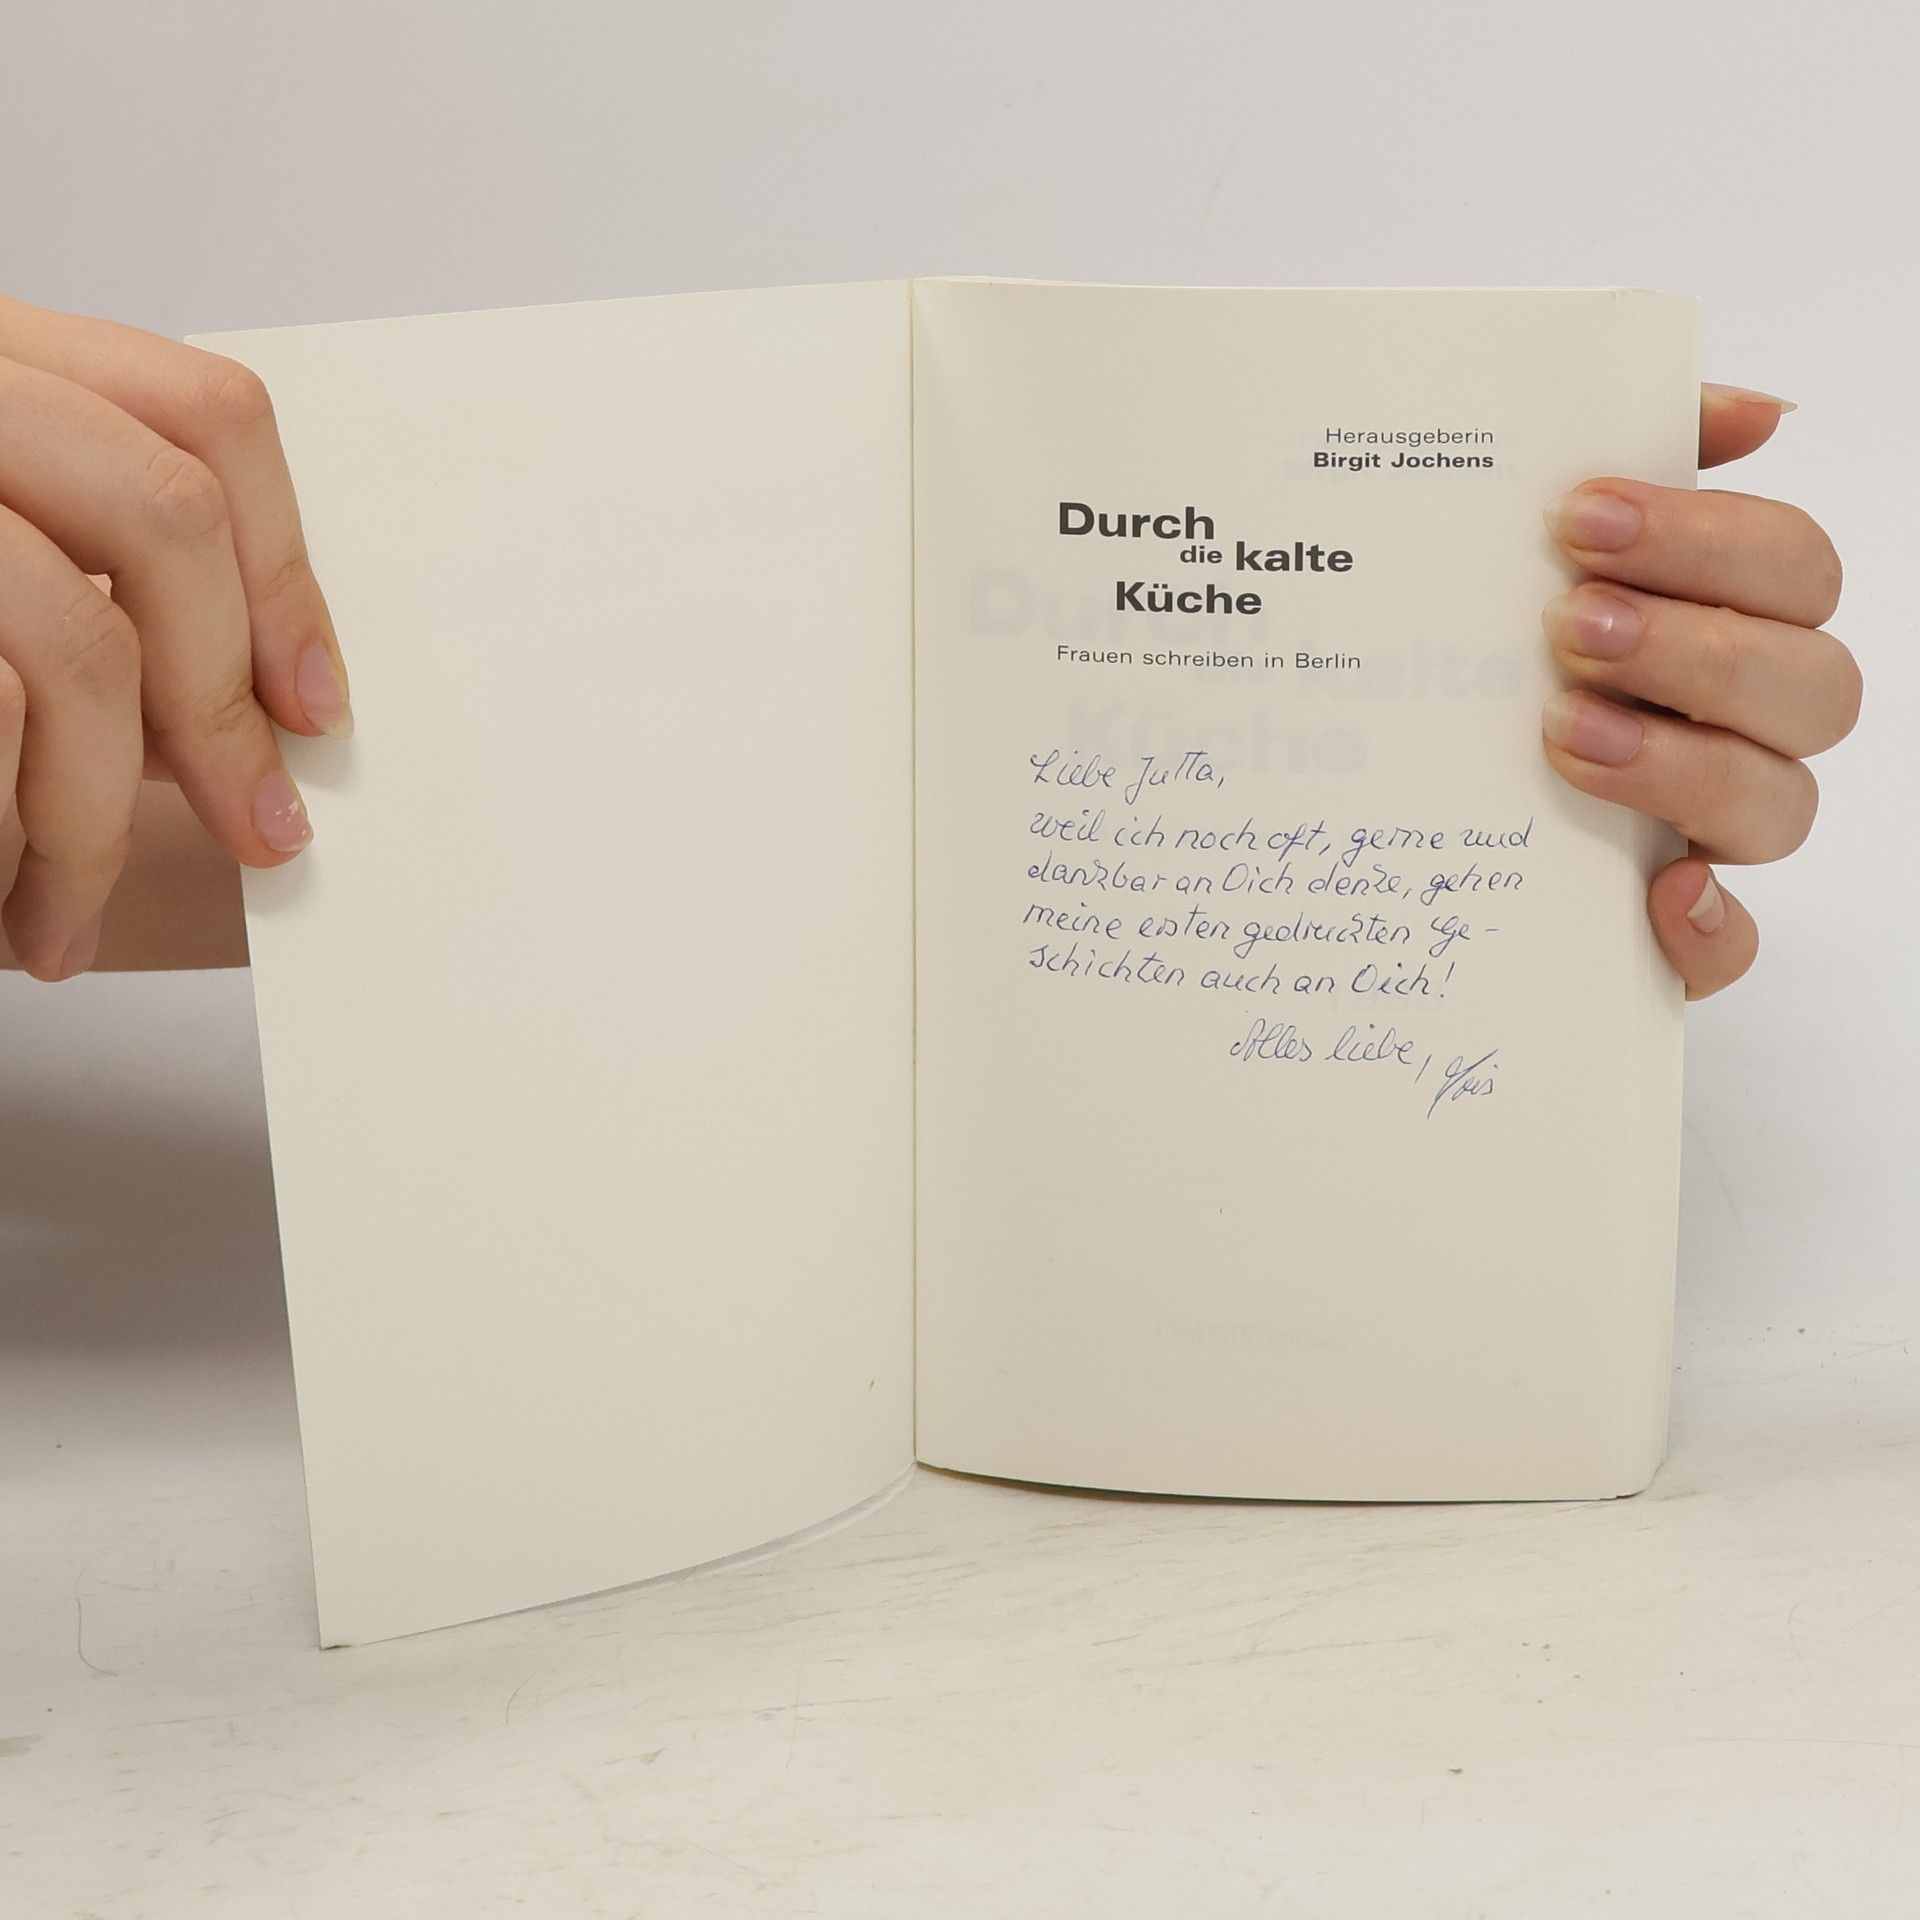 Herausgeberin
Birgit Jochens
Durch
die kalte
Küche
Frauen schreiben in Berlin
Liebe Jutta,
weil ich noch oft, gerne und
dankbar an Dich denke, gehen
meine ersten gedruckten Ge-
schichten auch an Dich!
Alles liebe,